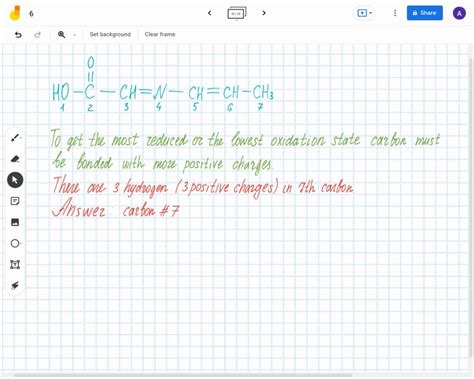 6
Share
A
Set background
Clear frame
O
HO-C-CH=N-CH=CH-CH₃
1 2 3 4 5 6 7
To get the most reduced or the lowest oxidation state carbon must
be bonded with more positive charges.
There are 3 hydrogen (3 positive charges) in 7th carbon
Answer carbon #7